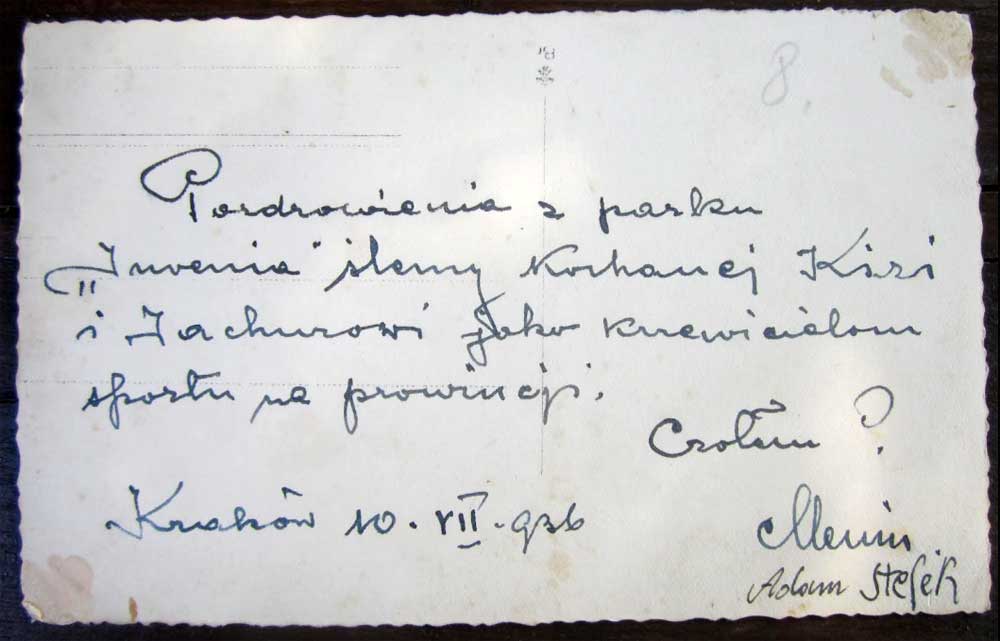 8.
Pozdrowienia z parku
„Juvenia" ślemy Kochanej Kizi
i Jachurowi jako krzewicielom
sportu na prowincji.
Czołem ?
Kraków 10. VII. 936
Adam Stefek